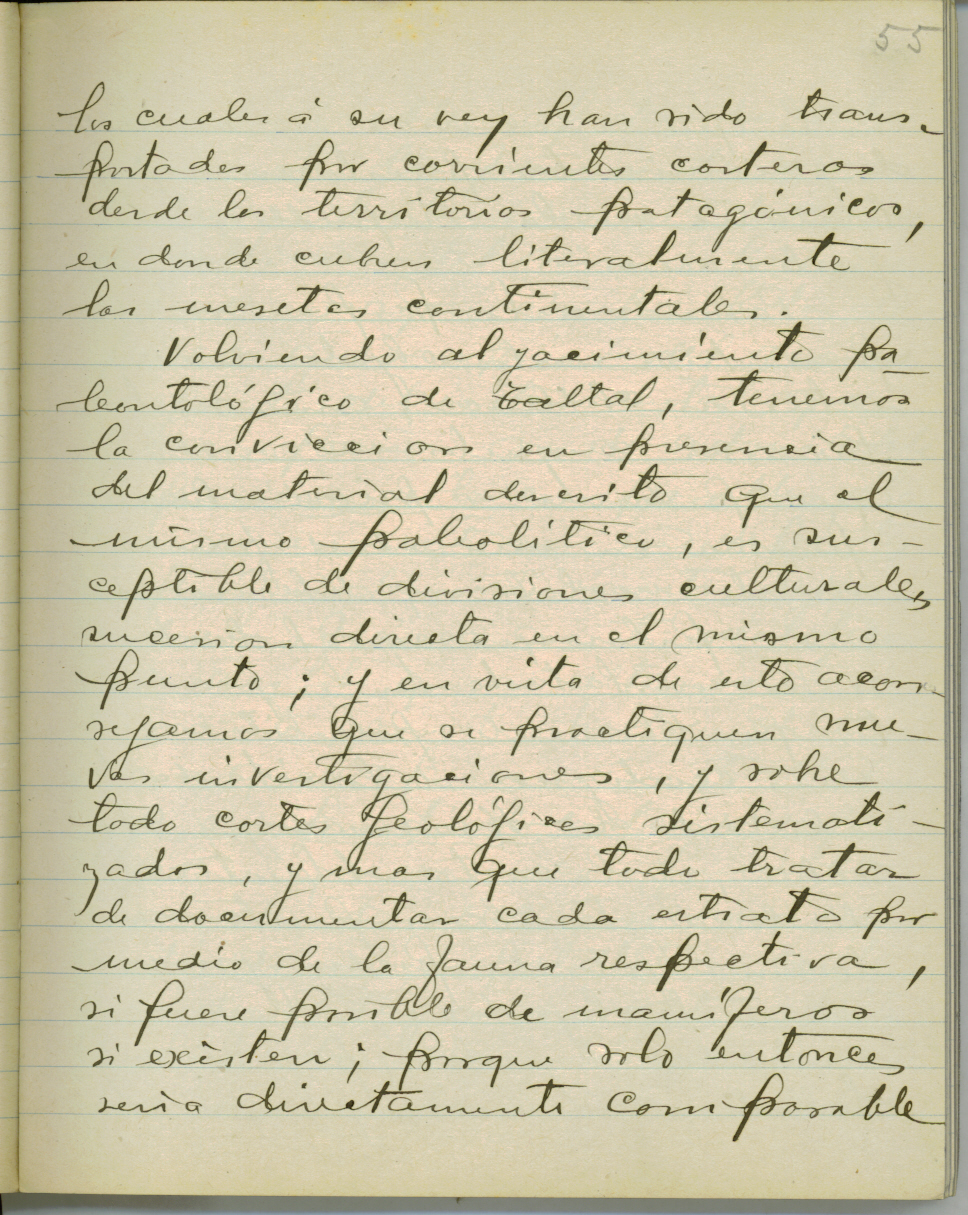 55
los cuales á su vez han sido trans-
portados por corrientes costeras
desde los territorios patagónicos,
en donde cubren literalmente
las mesetas continentales.
Volviendo al yacimiento pa-
leontológico de Taltal, tenemos
la conviccion en presencia
del material descrito que el
mismo paleolítico, es sus-
ceptible de divisiones culturales
sucesion directa en el mismo
punto; y en vista de esto acon-
sejamos que se practiquen nue-
vas investigaciones, y sobre
todo cortes geológicos sistemati-
zados, y mas que todo tratar
de documentar cada estrato por
medio de la fauna respectiva,
si fuere posible de mamíferos
si existen; porque solo entonces
seria directamente comparable